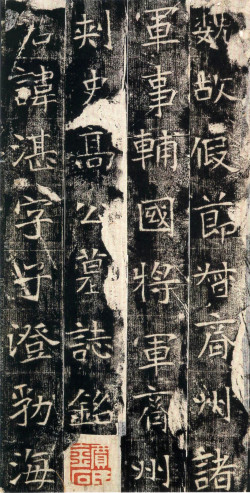 魏故假節督齊州諸
軍事輔國將軍齊州
刾史高公墓誌銘
公諱湛字子澄勃海